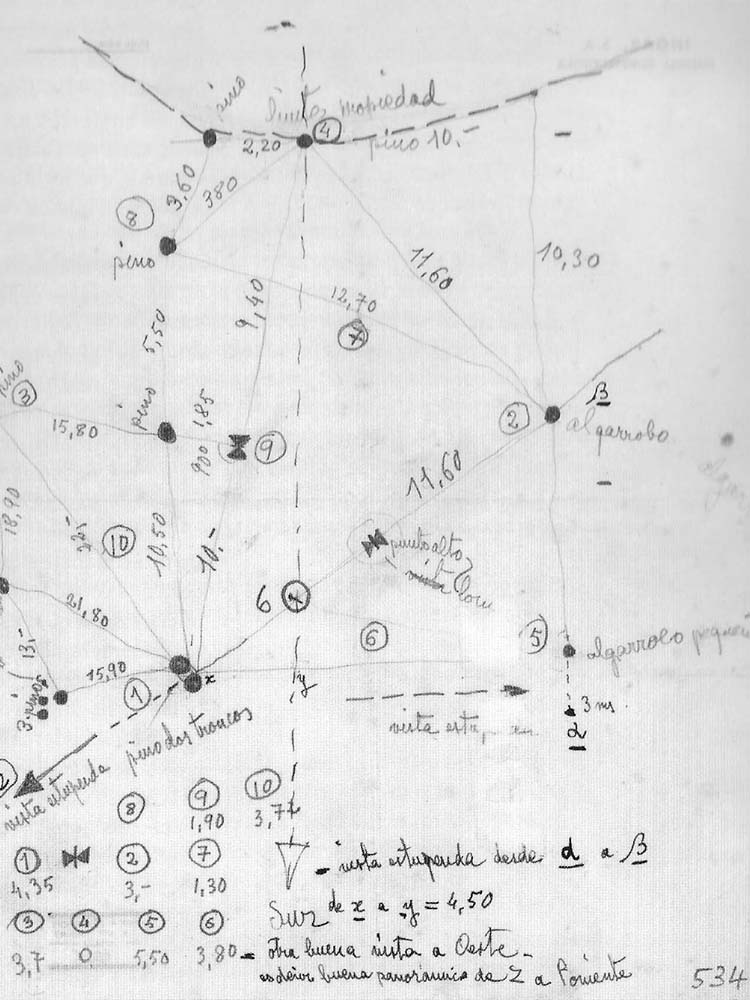 pino
limite propiedad
4
2,20
pino 10.-
3,60
380
8
pino
11,60
10,30
12,70
9,40
5,50
7
pino
3
pino
15,80
1,85
900
9
2
β
algarrobo
11,60
18,90
22,-
10
10,50
10.-
punto alto
21,80
6
x
6
5
algarrobo
13,-
3 pinos
15,90
1
x
y
3 ms.
α
vista esta,-
vista estupenda
pino dos troncos
8
9
10
1,90
3,7
1
2
7
4,35
3,-
1,30
- vista estupenda desde α a β
Sur
de x a y = 4,50
3
4
5
6
3,7
0
5,50
3,80
- otra buena vista a Oeste -
es decir buena panorámica de Z a Poniente
534